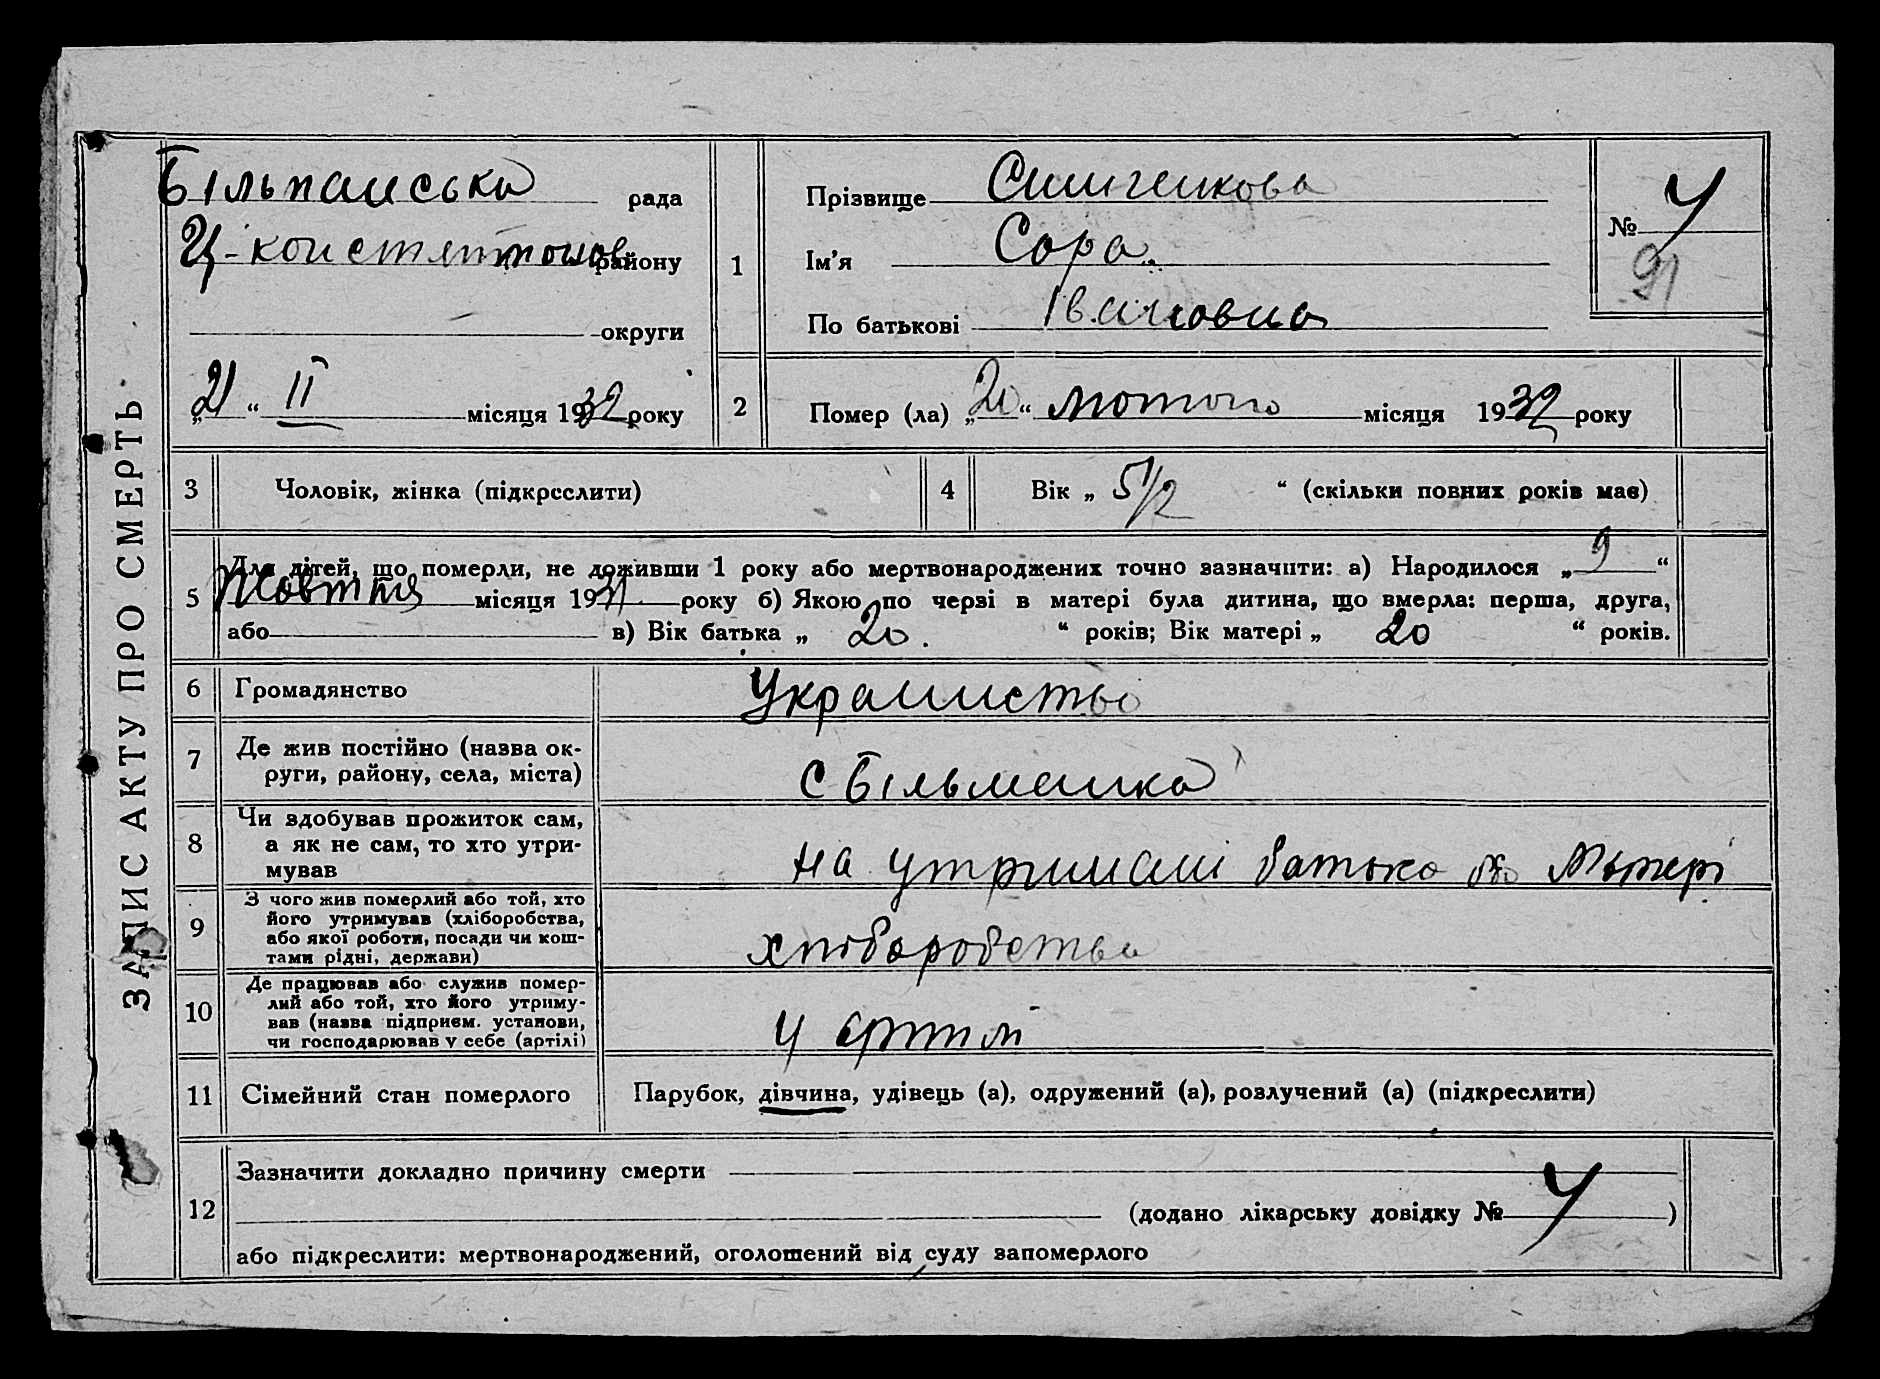 ЗАПИС АКТУ ПРО СМЕРТЬ
рада
району
округи
„21“ II місяця 1932 року
1
Прізвище
Ім'я Сора
По батькові Івановна
№ 4
91
2
Помер (ла) „20“ лютого місяця 1932 року
3 Чоловік, жінка (підкреслити)
4 Вік „ 5/2 “ (скільки повних років має)
5 Для дітей, що померли, не доживши 1 року або мертвонароджених точно зазначити: а) Народилося „9“
Жовтня місяця 1931 року б) Якою по черзі в матері була дитина, що вмерла: перша, друга,
або в) Вік батька „ 20. “ років; Вік матері „ 20 “ років.
6 Громадянство
7 Де жив постійно (назва ок-
руги, району, села, міста)
с Більманка
8 Чи здобував прожиток сам,
а як не сам, то хто утри-
мував
на утримані батька Матері
9 З чого жив померлий або той, хто
його утримував (хліборобства,
або якої роботи, посади чи кош-
тами рідні, держави)
хліборобства
10 Де працював або служив помер-
лий або той, хто його утриму-
вав (назва підприєм. установи,
чи господарював у себе (артілі)
у артілі
11 Сімейний стан померлого
Парубок, дівчина, удівець (а), одружений (а), розлучений (а) (підкреслити)
12 Зазначити докладно причину смерти
(додано лікарську довідку № 4 )
або підкреслити: мертвонароджений, оголошений від суду запомерлого